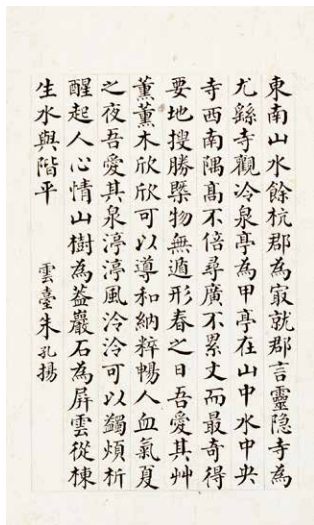 東南山水餘杭郡為冣就郡言靈隐寺為
尤繇寺觀冷泉亭為甲亭在山中水中央
寺西南隅高不倍尋廣不累丈而最奇得
要地搜勝槩物無遁形春之日吾愛其艸
薰薰木欣欣可以導和納粹暢人血氣夏
之夜吾愛其泉渟渟風泠泠可以蠲煩析
醒起人心情山樹為葢巖石為屏雲從棟
生水與階平
雲臺朱孔揚